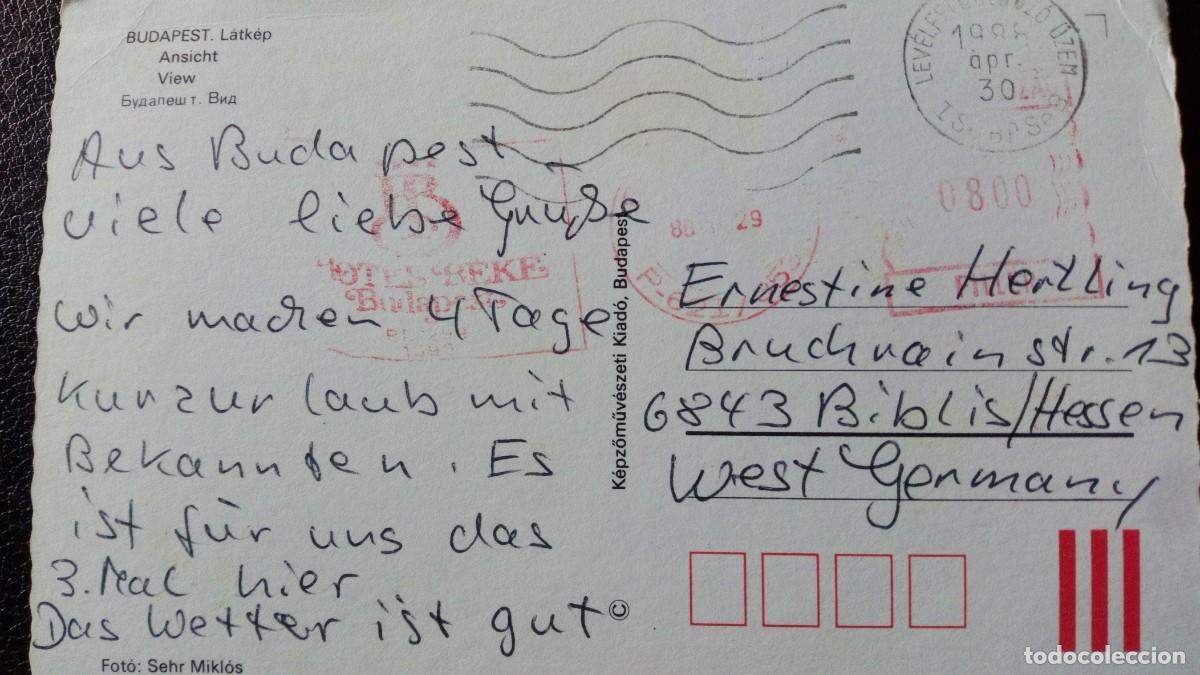 BUDAPEST. Látkép
Ansicht
View
Будапешт. Вид
Aus Budapest
viele liebe Grüße
wir machen 4 Tage
Kurzurlaub mit
Bekannten. Es
ist für uns das
3. Mal hier
Das Wetter ist gut
Fotó: Sehr Miklós
Képzőművészeti Kiadó, Budapest
©
1988
ápr.
30
0800
88 29
HOTEL BÉKE
Budapest
Ernestine Hertling
Bruchrainstr. 13
6843 Biblis/Hessen
West Germany
todocoleccion